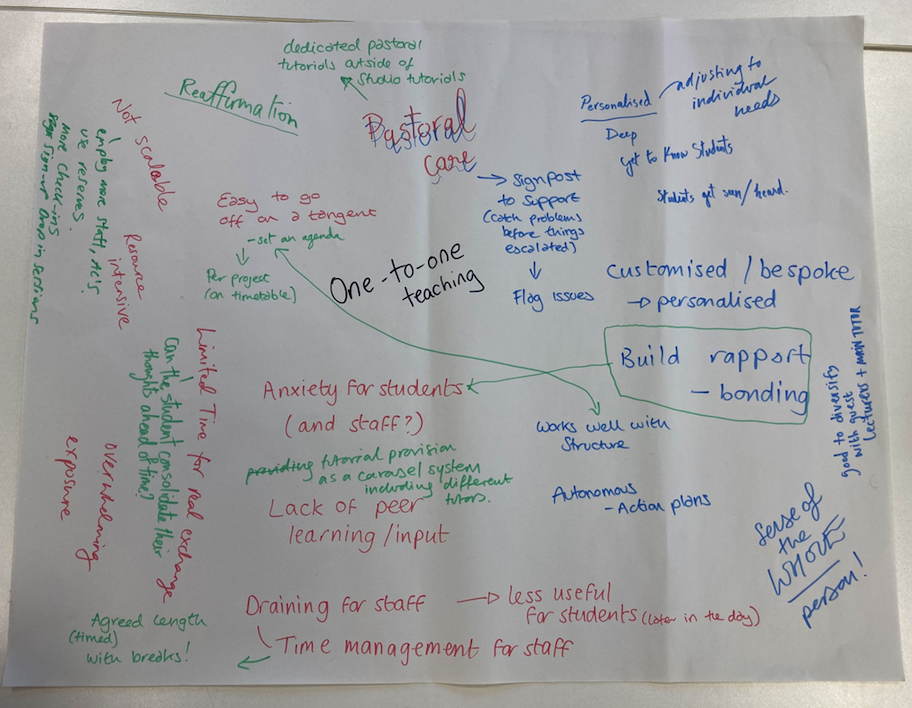 dedicated pastoral
tutorials outside of
studio tutorials
Reaffirmation
Pastoral
care
Personalised
adjusting to
individual
needs
Deep
get to know students
Students get seen/heard.
Signpost
to support
(catch problems
before things
escalated)
Flag issues
Not scalable
employ more staff, AL's
use reserves.
more check-ins
sign-up drop in sessions
Resource
intensive
Easy to go
off on a tangent
- set an agenda
Per project
(on timetable)
One-to-one
teaching
Customised / bespoke
→ personalised
Build rapport
- bonding
good to diversify
with guest
lecturers + main tutor
Limited Time for real exchange
Can the student consolidate their
thoughts ahead of time?
overwhelming
exposure
Anxiety for students
(and staff?)
providing tutorial provision
as a carasel system
including different
tutors.
Lack of peer
learning / input
Works well with
structure
Autonomous
- Action plans
Sense of
the
WHOLE
person!
Draining for staff → less useful
for students (later in the day)
Time management for staff
Agreed length
(timed)
with breaks!